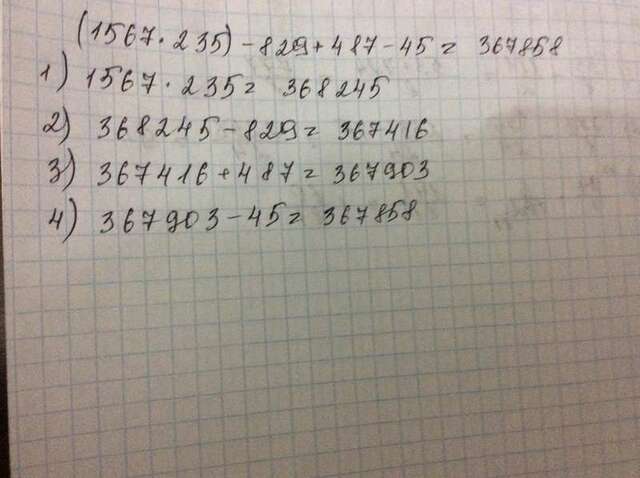 (1567·235)-829+487-45= 367858
1) 1567·235= 368245
2) 368245-829= 367416
3) 367416+487= 367903
4) 367903-45= 367858